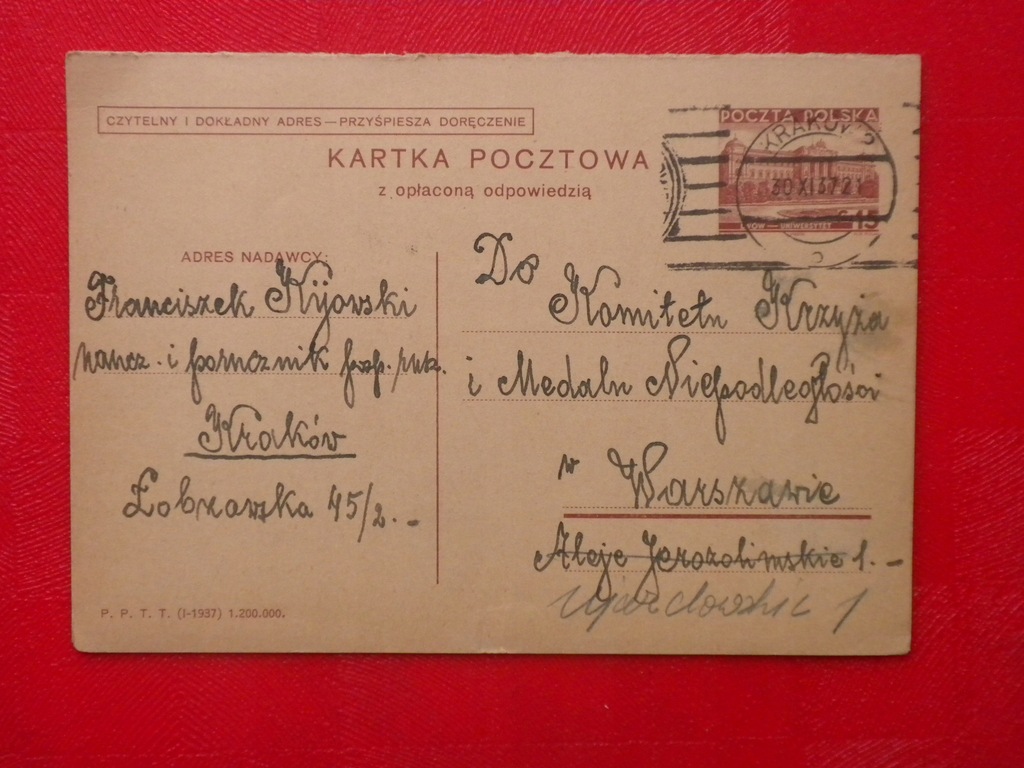 CZYTELNY I DOKŁADNY ADRES—PRZYŚPIESZA DORĘCZENIE
KARTKA POCZTOWA
z opłaconą odpowiedzią
POCZTA POLSKA
KRAKÓW 2
30 XI 37 21
LWÓW — UNIWERSYTET
15
ADRES NADAWCY:
Franciszek Kijowski
naucz. i porucznik posp. rusz.
Kraków
Łobzowska 45/2. -
Do
Komitetu Krzyża
i Medalu Niepodległości
w Warszawie
Aleje Jerozolimskie 1. -
Ujazdowskie 1
P. P. T. T. (I-1937) 1.200.000.